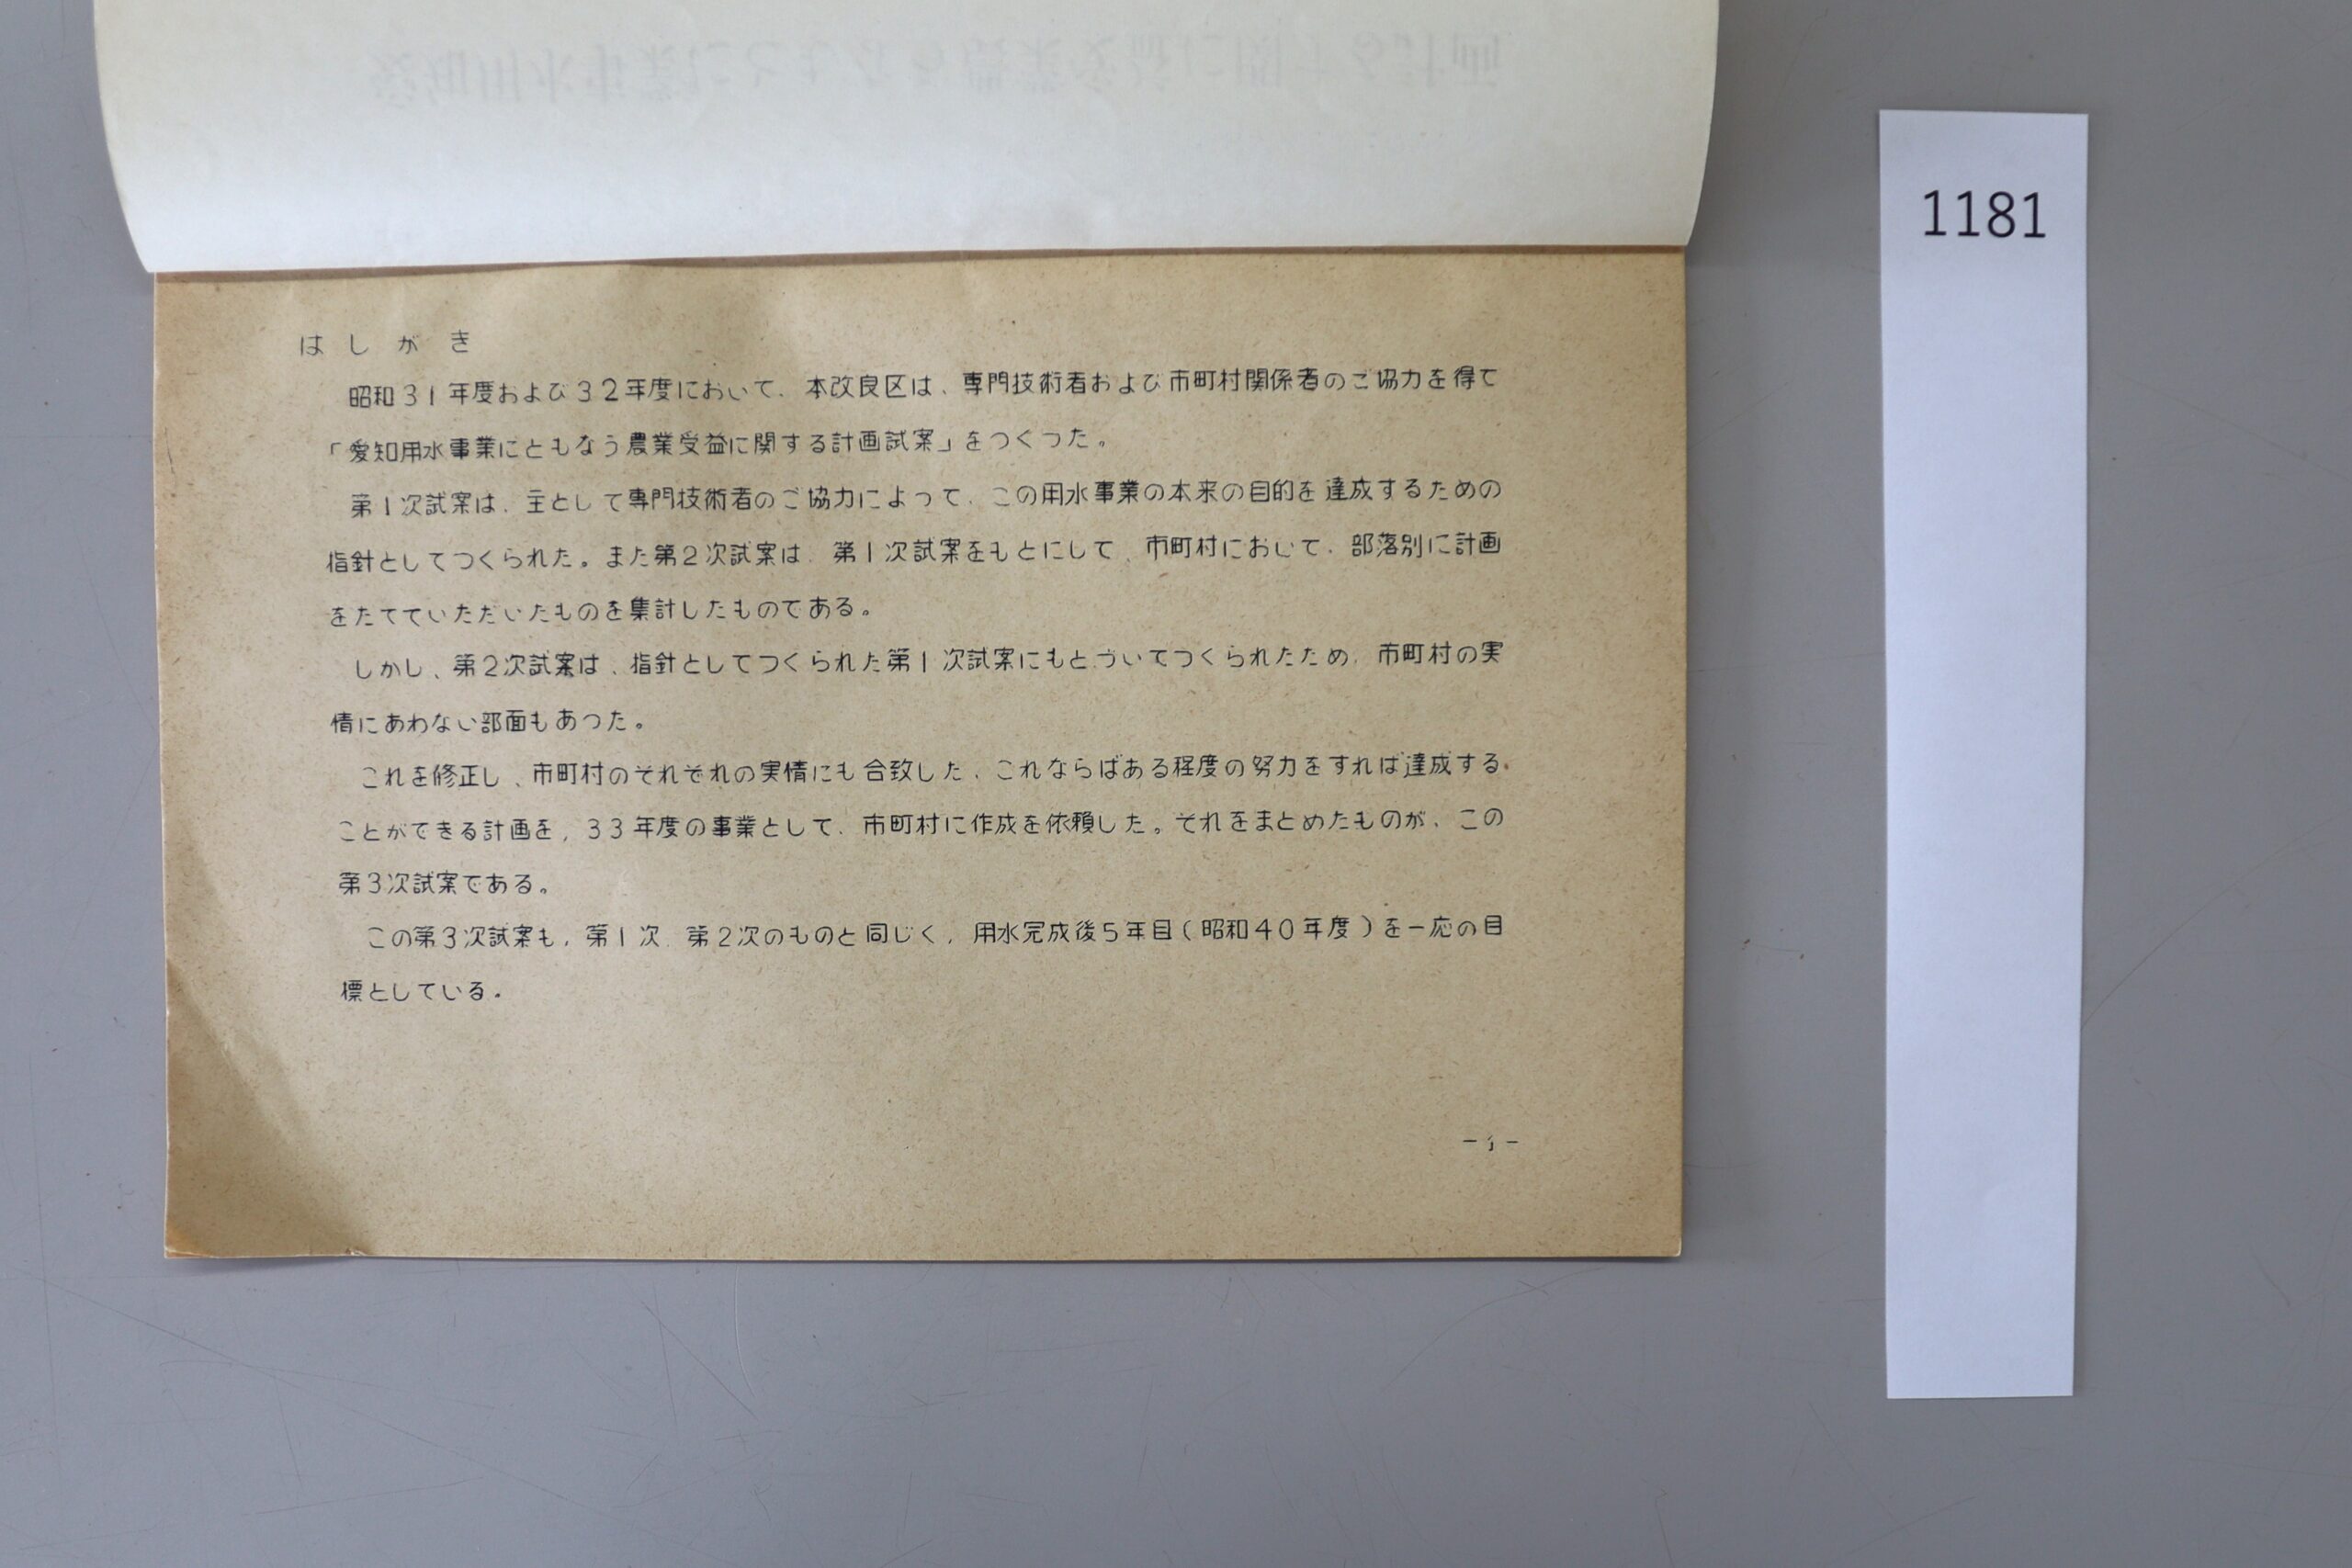 はしがき
昭和31年度および32年度において、本改良区は、専門技術者および市町村関係者のご協力を得て
「愛知用水事業にともなう農業受益に関する計画試案」をつくつた。
第1次試案は、主として専門技術者のご協力によって、この用水事業の本来の目的を達成するための
指針としてつくられた。また第2次試案は、第1次試案をもとにして、市町村において、部落別に計画
をたてていただいたものを集計したものである。
しかし、第2次試案は、指針としてつくられた第1次試案にもとづいてつくられたため、市町村の実
情にあわない部面もあつた。
これを修正し、市町村のそれぞれの実情にも合致した、これならばある程度の努力をすれば達成する
ことができる計画を、33年度の事業として、市町村に作成を依頼した。それをまとめたものが、この
第3次試案である。
この第3次試案も、第1次、第2次のものと同じく、用水完成後5年目(昭和40年度)を一応の目
標としている。
-1-
1181